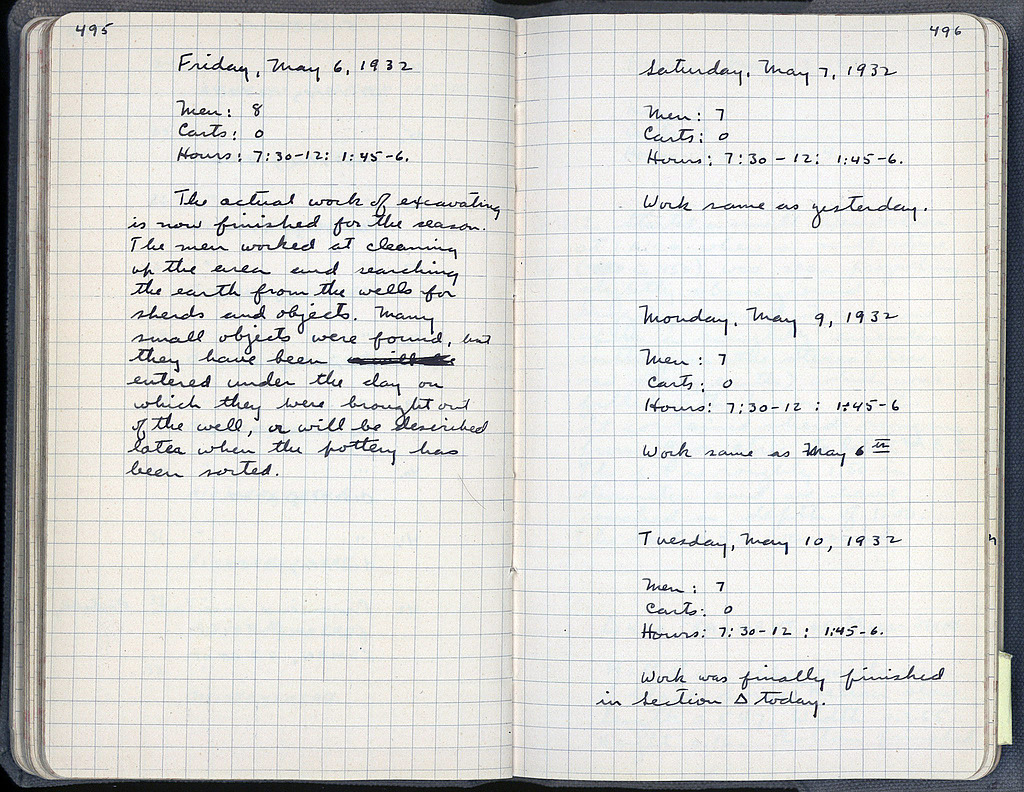 495
Friday, May 6, 1932
Men: 8
Carts: 0
Hours: 7:30-12: 1:45-6.
The actual work of excavating
is now finished for the season.
The men worked at cleaning
up the area and searching
the earth from the wells for
sherds and objects. Many
small objects were found, but
they have been
entered under the day on
which they were brought out
of the well, or will be described
later when the pottery has
been sorted.
496
Saturday, May 7, 1932
Men: 7
Carts: 0
Hours: 7:30-12: 1:45-6.
Work same as yesterday.
Monday, May 9, 1932
Men: 7
Carts: 0
Hours: 7:30-12 : 1:45-6
Work same as May 6th
Tuesday, May 10, 1932
Men: 7
Carts: 0
Hours: 7:30-12 : 1:45-6.
Work was finally finished
in Section Δ today.